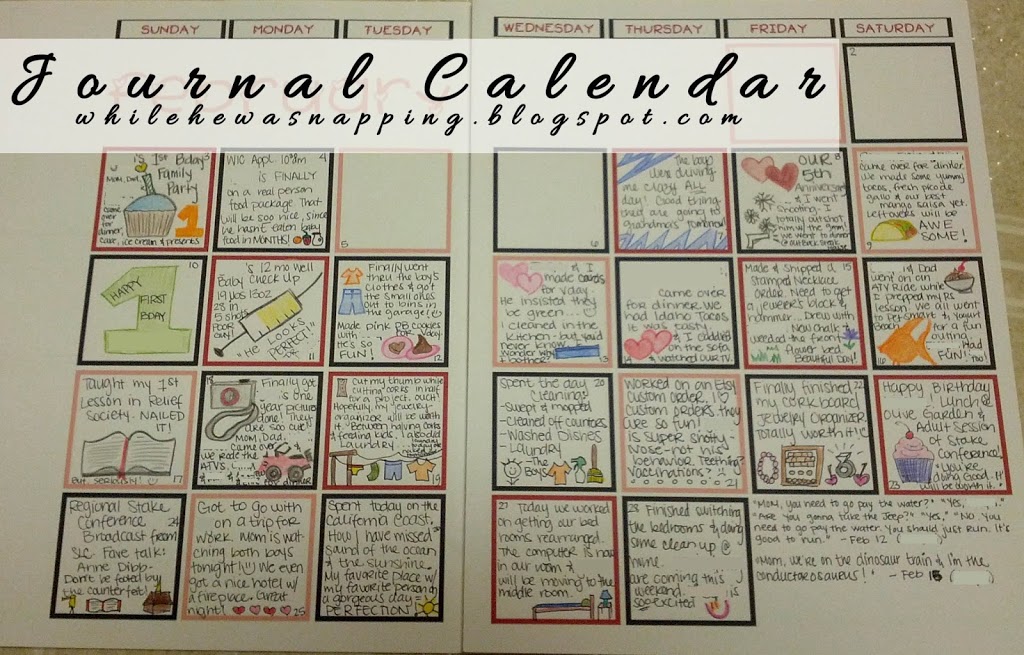 SUNDAY MONDAY TUESDAY WEDNESDAY THURSDAY FRIDAY SATURDAY
Journal Calendar
whilehewasnapping.blogspot.com
2
's 1st Bday 3
Mom, Dad,
Family
Party
came
over
for
dinner,
cake, ice cream & presents
1
WIC Appt. 10 am 4
is FINALLY
on a real person
food package. That
will be soo nice, since
he hasn't eaten baby
food in MONTHS!
5
6
The boys
were driving
me crazy ALL
day! Good thing
they are going to
grandma's tomorrow!
OUR 8
5th
Anniversary
& I went
shooting. I
totally outshot
him w/ the 9mm!
we went to dinner
@ Outback Steak
came over for dinner.
We made some yummy
tacos, fresh pico de
gallo & our best
mango salsa yet.
Leftovers will be
AWE
SOME!
9
10
HAPPY
FIRST
BDAY
1
's 12 mo Well
Baby Check Up
19 lbs 13oz
28 in
5 shots
POOR
GUY!
"HE LOOKS
PERFECT!"
11
Finally went
thru the boy's
clothes & got
the small ones
out to loins in
the garage!
Made pink PB cookies
w/ for Vday.
He's SO
FUN!
12
& I
made cards
for Vday.
He insisted they
be green...
I cleaned in the
kitchen - but you'd
never know I
Wonder why I
bother?
13
came over
for dinner. We
had Idaho Tacos
it was tasty.
14
& I cuddled
on the sofa
& watched our TV.
Made & Shipped a 15
Stamped Necklace
order. Need to get
a jeweler's block &
hammer... Drew with
New Chalk &
weeded the front
flower bed.
Beautiful Day!
& Dad
went on an
ATV Ride while
I prepped my RS
lesson. We all went
to Petsmart & Yogurt
Beach
for a fun
outing.
Had
FUN!
16
Taught my 1st
Lesson in Relief
Society. NAILED
IT!
But, seriously! 17
18
Finally got
is one
year picture
done! They
are soo cute!
Mom, Dad,
came over
we rode the
ATVs.
I cut my thumb while
cutting corks in half
for a project. Ouch!
Hopefully, my jewelry
organizer will be worth
it. Between halving corks
& feeding kids, I also did
Laundry
19
Spent the day 20
Cleaning!
-Swept & mopped
-Cleaned off counters
-Washed Dishes
-Laundry
-The
Boys
Worked on an Etsy
custom order. I ♡
custom orders they
are so fun!
is super snotty-
nose - not his
behavior. Teething?
Vaccinations?
21
Finally finished 22
my corkboard
Jewelry Organizer
Totally worth it!
Happy Birthday
Lunch @
Olive Garden &
Adult Session
of Stake
Conference.
"you're
doing Good. It
will be worth it."
23
Regional Stake
Conference 24
Broadcast from
SLC. Fave talk:
Anne Dibb-
Don't be fooled by
the counterfeit!
Got to go with
on a trip for
work. Mom is wat-
ching both boys
tonight! We even
got a nice hotel w/
a fireplace. Great
night! 25
Spent today on the
California Coast.
How I have missed
sound of the ocean
& the sunshine.
My favorite place w/
my favorite person on
a gorgeous day =
PERFECTION!
27 Today we worked
on getting our bed
rooms rearranged.
The computer is now
in our room &
will be moving to the
middle room.
28 Finished switching
the bedrooms & doing
some clean up @
home.
are coming this
weekend.
soo excited
"Mom, you need to go pay the water?" "Yes,
"Are you gonna take the Jeep?" "Yes," "No. You
need to go pay the water. You should just run. It's
good to run." - Feb 12
"Mom, we're on the dinosaur train & I'm the
conductorosaurus!" - Feb 15